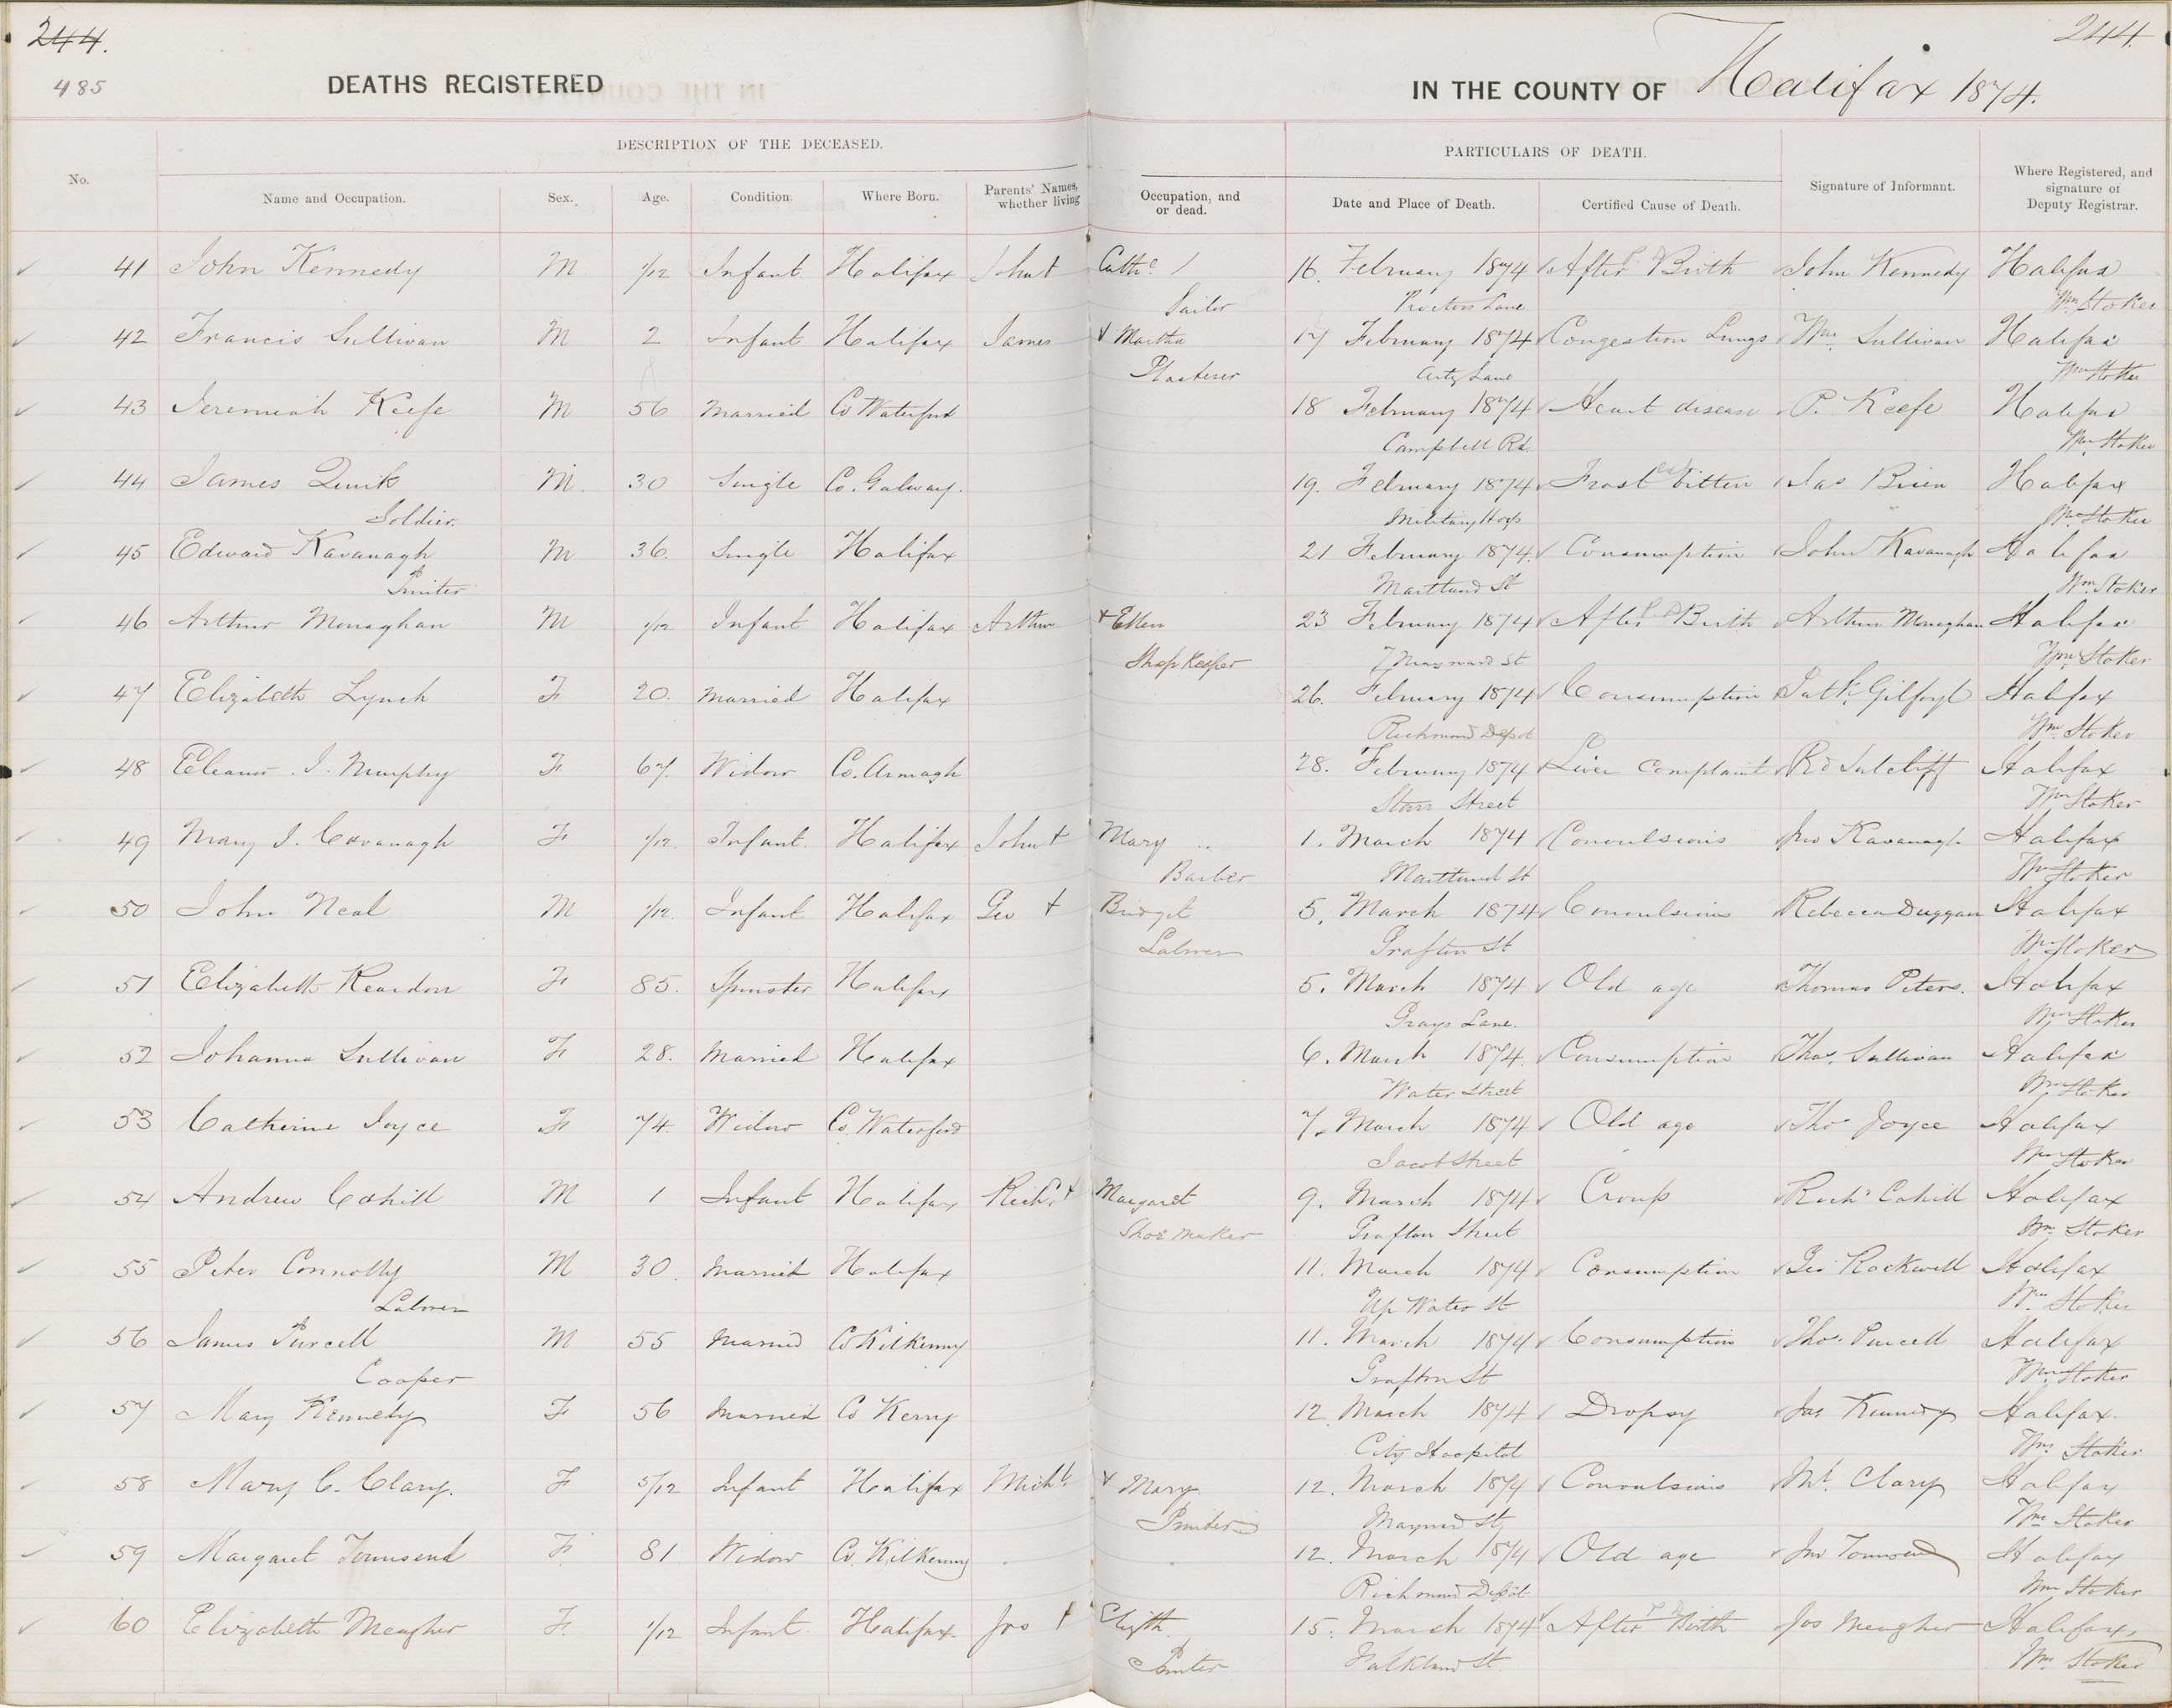 244.
244.
485
DEATHS REGISTERED
IN THE COUNTY OF Halifax 1874.
DESCRIPTION OF THE DECEASED.
PARTICULARS OF DEATH.
No.
Name and Occupation.
Sex.
Age.
Condition.
Where Born.
Parents' Names, whether living
Occupation, and or dead.
Date and Place of Death.
Certified Cause of Death.
Signature of Informant.
Where Registered, and signature of Deputy Registrar.
41 John Kennedy M 1/12 Infant Halifax John + Cathe 16. February 1874 After Birth John Kennedy Halifax
Sailor Proctors Lane Wm Stoker
42 Francis Sullivan M 2 Infant Halifax James + Martha 17 February 1874 Congestion Lungs Wm Sullivan Halifax
Plasterer City Lane Wm Stoker
43 Jeremiah Keefe M 56 Married Co Waterford 18 February 1874 Heart disease P. Keefe Halifax
Campbell Rd. Wm Stoker
44 James Quirk M. 30 Single Co. Galway. 19. February 1874 Frost bitten Jas Brien Halifax
Soldier. Military Hosp Wm Stoker
45 Edward Kavanagh M 36. Single Halifax 21 February 1874. Consumption John Kavanagh Halifax
Printer Maitland St Wm Stoker
46 Arthur Monaghan M 1/12 Infant Halifax Arthur + Ellen 23 February 1874 After Birth Arthur Monaghan Halifax
Shop Keeper 7 Maynard St Wm Stoker
47 Elizabeth Lynch F 20. Married Halifax 26. February 1874 Consumption Patk Gilfoyl Halifax
Richmond Depot Wm Stoker
48 Eleanor J. Murphy F 67. Widow Co. Armagh 28. February 1874 Liver Complaint Rd Sutcliff Halifax
Starr Street Wm Stoker
49 Mary J. Cavanagh F 1/12. Infant. Halifax John + Mary 1. March 1874 Convulsions Jno Kavanagh Halifax
Barber Maitland St Wm Stoker
50 John Neal M 1/12. Infant Halifax Geo + Bridget 5. March 1874 Convulsions Rebecca Duggan Halifax
Labourer Grafton St Wm Stoker
51 Elizabeth Reardon F 85. Spinster Halifax 5. March 1874 Old age Thomas Peters. Halifax
Grays Lane. Wm Stoker
52 Johanna Sullivan F 28. Married Halifax 6. March 1874. Consumption Thos. Sullivan Halifax
Water Street Wm Stoker
53 Catherine Joyce F 74. Widow Co. Waterford 7. March 1874 Old age Thos Joyce Halifax
Jacob Street Wm Stoker
54 Andrew Cahill M 1 Infant Halifax Richd + Margaret 9. March 1874 Croup Richd Cahill Halifax
Shoe Maker Grafton Street Wm Stoker
55 Peter Connolly M 30. Married Halifax 11. March 1874 Consumption Geo Rockwell Halifax
Labourer Up Water St Wm Stoker
56 James Purcell M 55 Married Co Kilkenny 11. March 1874 Consumption Thos. Purcell Halifax
Cooper Grafton St Wm Stoker
57 Mary Kennedy F 56 Married Co Kerry 12 March 1874 Dropsy Jas Kennedy Halifax.
City Hospital Wm Stoker
58 Mary C. Clary. F 5/12 Infant Halifax Michl. + Mary. 12. March 1874 Convulsions Ml. Clary Halifax
Printer Maynard St Wm Stoker
59 Margaret Townsend F 81 Widow Co. Kilkenny 12. March 1874 Old age Jno Townsend Halifax
Richmond Depôt Wm Stoker
60 Elizabeth Meagher F. 1/12 Infant Halifax. Jos + Elizth. 15. March 1874 After Birth Jos Meagher Halifax,
Printer Falkland St. Wm Stoker